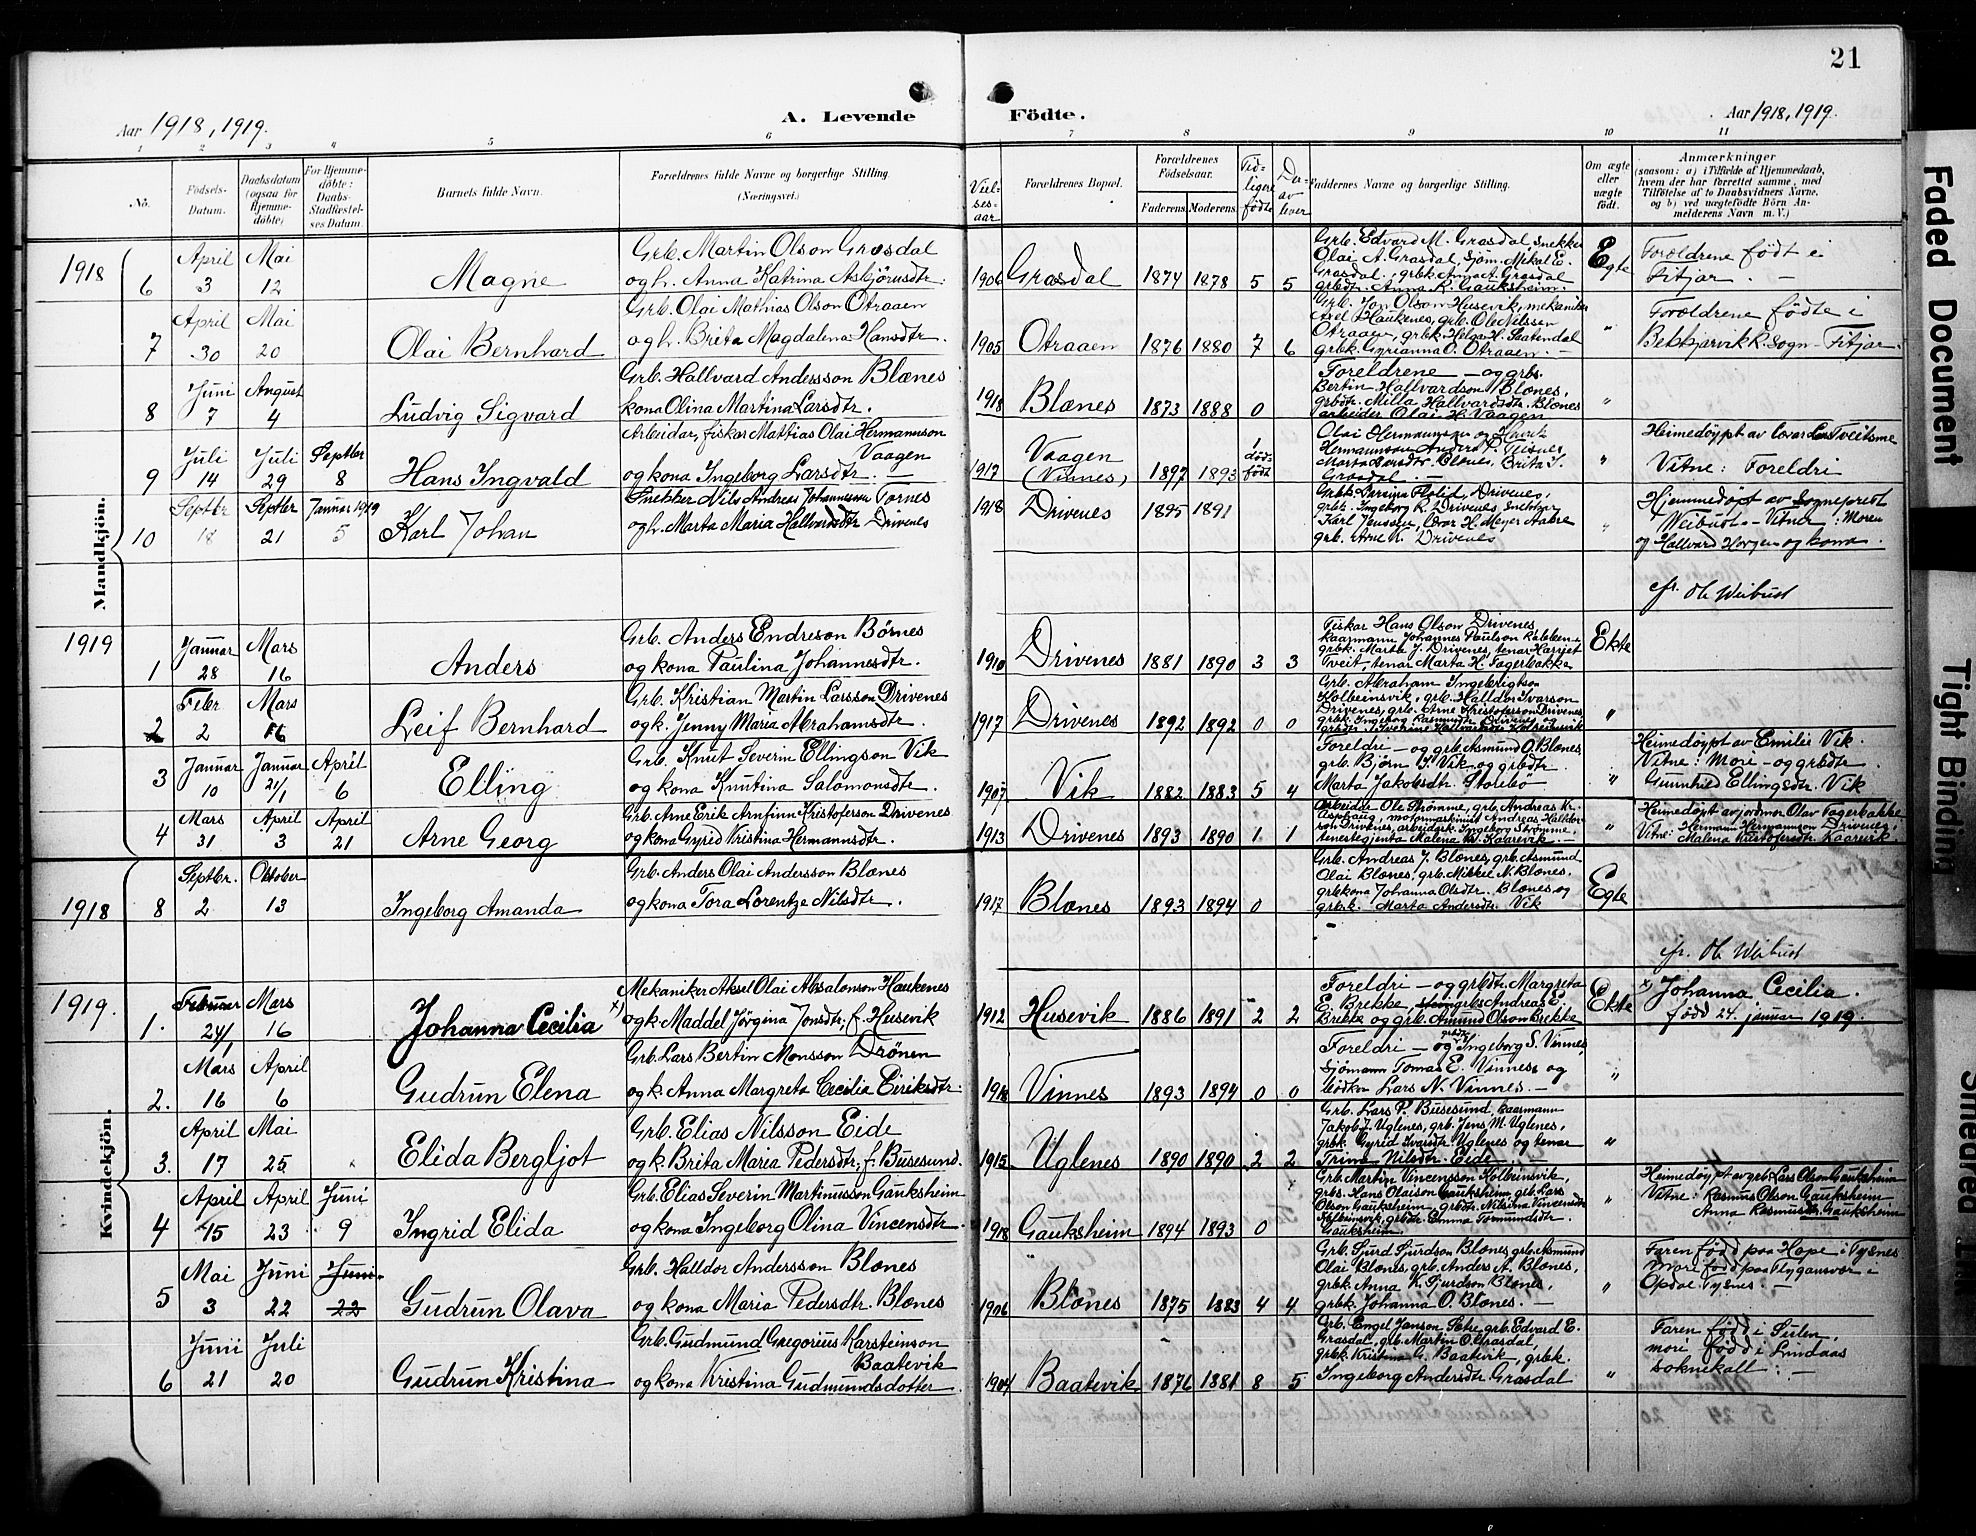 21
Aar 1918, 1919.
A. Levende Födte.
Aar 1918, 1919.
1 2 3 4 5 6 7 8 9 10 11
No.
Födsels-Datum.
Daabsdatum (ogsaa for Hjemmedöbte)
For Hjemmedöbte: Daabs-Stadfæstelses Datum.
Barnets fulde Navn.
Forældrenes fulde Navne og borgerlige Stilling.
(Næringsvei.)
Vielsesaar
Forældrenes Bopæl.
Forældrenes Födselsaar.
Faderens. Moderens.
Tidligere fødte
Derav lever
Faddernes Navne og borgerlige Stilling.
Om ægte eller uægte födt.
Anmærkninger
(saasom: a) i Tilfælde af Hjemmedaab, hvem der har forrettet samme, med Tilföielse af to Daabsvidners Navne, og b) ved uægtefödte Börn Anmelderens Navn m. V.)
Mandkjön.
1918
6 April 3 Mai 12 Magne
Grb. Martin Olson Grasdal
og h. Anna Katrina Asbjörnsdtr.
1906 Grasdal 1874 1878 5 5
Grb. Edvard M. Grasdal, snekker
Olai A. Grasdal, sjöm. Mikal E.
Grasdal, grbk. Anna A. Grasdal
grbdtr. Anna K. Gauksheim.
Egte
Forældrene født i
Fitjar.
7 April 30 Mai 20 Olai Bernhard
Grb. Olai Mathias Olson Otraaen
og h. Brita Magdalena Hansdtr.
1905 Otraaen 1876 1880 7 6
Grb. Jon Olson Husevik, mekaniker
Axel Haukenes, grb. Ole Nilssen
Otraaen, grbk. Helga H. Saatendal
grbk. Gyrianna O. Otraaen.
"
Forældrene fødte i
Bekkjarvik R. sogn - Fitjar.
8 Juni 7 August 4 Ludvig Sigvard
Grb. Hallvard Andersson Blænes
kona Olina Martina Larsdtr.
1918 Blænes 1873 1888 0
Foreldrene - og grbs.
Bertin Hallvardson Blænes,
grbdtr. Milla Hallvardsdtr. Blænes
arbeider Olai H. Vaagen
"
9 Juli 14 Juli 29 Septbr 8 Hans Ingvald
Arbeidar, fiskar Mattias Olai Hermannson
Vaagen
og kona Ingeborg Larsdtr.
1917 Vaagen (Vinnes) 1897 1893 1 dødfødt
Olai Hermannson og Henrik
Hermannson Anders
Marta Larsdtr. Blænes, Brita
Grasdal.
"
Heimedøypt av Lars Tveitsme
Vitne: Foreldri
10 Septbr 18 Septbr 21 Januar 1919 5 Karl Johan
Snekker Nils Andreas Johannessen Tornes
og h. Marta Maria Hallvardsdtr Drivenes
1918 Drivenes 1895 1891
Ingeborg K. Drivenes, snekker
Karl Jenssen, Meyer Aakre
grb. Arne Drivenes
"
Hjemmedöpt av Sogneprest
Weibust - Vitner: Moren
og Hallvard Horgen og kona.
efr. Ole Weibust
1919
1 Januar 28 Mars 16 Anders
Grb. Anders Endreson Börnes
og kona Paulina Johannesdtr.
1910 Drivenes 1881 1890 3 3
Fiskar Hans Olson Drivenes,
kaarmann Johannes Paulson
grbk. Marta J. Drivenes, tenar Harriet
Tveit, tenar Marta H. Fagerbakke
Ekte
2 Febr 2 Mars 16 Leif Bernhard
Grb. Kristian Martin Larsson Drivenes
og k. Jenny Maria Abrahamsdtr.
1917 Drivenes 1892 1892 0 0
Grb. Abraham Ingebrigtson
Kolbeinsvik, grb. Halldor Ivarsson
Drivenes, grb. Arne Kristoferson Drivenes
grbk. Ingeborg Rasmusdtr Drivenes og
"
3 Januar 10 Januar 21/1 April 6 Elling
Grb. Knut Severin Ellingson Vik
og kona Knutina Salomonsdtr.
1907 Vik 1882 1883 5 4
Foreldri - og grb. Asmund O. Blænes
grb. Bjørn J. Vik og grbdtr.
Marta Jakobsdtr. Storebö
"
Heimedøypt av Emilie Vik.
Vitne: Mori - og grbdtr.
Gunnhild Ellingsdtr. Vik
4 Mars 31 April 3 April 21 Arne Georg
Grb. Arne Erik Arnfinn Kristoferson Drivenes
og kona Gyrid Kristina Hermannsdtr.
1913 Drivenes 1893 1890 1 1
Arbeidar Ole Strömme, grb. Andreas Kr.
Asphaug, motormaskinist Andreas Halldorson Drivenes, arbeidsk. Ingeborg Strömme,
tenestegjenta Malena K. Kaarevik.
"
Heimedöpt av jordmor Olav Fagerbakke
Vitne: Hermann Hermannson Drivenes,
Malena Kristofersdtr. Kaarevik.
Kvindekjön.
1918
8 Septbr. 2 Oktober 13 Ingeborg Amanda
Grb. Anders Olai Andersson Blænes
og kona Tora Lorentze Nilsdtr.
1917 Blænes 1893 1894 0
Grb. Andreas J. Blænes, grb. Asmund
Olai Blænes, grb. Mikkel N. Blænes,
grbkona Johanna Olsdtr. Blænes og
grb.k. Marta Andersdtr. Vik
Egte
efr. Ole Weibust
1919.
1. Februar 24/1 Mars 16 Johanna Cecilia x)
Mekaniker Aksel Olai Absalonson Haukenes
og k. Maddel Jörgina Jonsdtr, f. Husevik
1912 Husevik 1886 1891 2 2
Foreldri - og grbdtr. Margreta
E. Brekke, grbs Andreas E.
Brekke og grb. Amund Olson Brekke
Ekte
x) Johanna Cecilia.
född 24. januar 1919.
2. Mars 16 April 6 Gudrun Elena
Grb. Lars Bertin Monsson Drönen
og k. Anna Margreta Cecilia Eiriksdtr.
1918 Vinnes 1893 1894 0 0
Foreldri - og grbdtr Ingeborg S. Vinnes,
Sjömann Tomas E. Vinnes og
Lars N. Vinnes.
"
3. April 17 Mai 25 Elida Bergljot
Grb. Elias Nilsson Eide
og k. Brita Maria Pedersdtr, f. Busesund.
1915 Uglenes 1890 1890 2 2
Grb. Lars P. Busesund, kaarmann
Jakob J. Uglenes, grb. Jens M. Uglenes,
grbk. Gyrid Ivarsdtr. Uglenes og tenar
Trina Nilsdtr. Eide
"
4 April 15 April 23 Juni 9 Ingrid Elida
Grb. Elias Severin Martinusson Gauksheim
og kona Ingeborg Olina Vincensdtr.
1918 Gauksheim 1894 1893 0
Grb. Martin Vincensson Kolbeinsvik,
grbs. Hans Olaison Gauksheim, grb. Lars
Olson Gauksheim, grbdtr. Nilsina Vincensdtr
Kolbeinsvik, grbdtr. Emma Tormundsdtr.
Gauksheim.
"
Heimedøypt av grb. Lars Olson Gauksheim
Vitne: Rasmus Olson Gauksheim
Anna Rasmusdtr. Gauksheim
5 Mai 3 Juni 22 Juni 22 Gudrun Olava
Grb. Halldor Andersson Blænes
og kona Maria Pedersdtr. Blænes
1906 Blænes 1875 1883 4 4
Grb. Sjurd Sjurdson Blænes, grb. Asmund
Olai Blænes, grb. Anders A. Blænes,
grbk. Anna K. Sjurdson Blænes,
grbk. Johanna O. Blænes.
"
Faren född paa Hope i Tysnes
Mori född paa Flygansvær i
Opdal Tysnes.
6 Juni 21 Juli 20 Gudrun Kristina
Grb. Gudmund Gregorius Karsteinson
Baatevik
og kona Kristina Gudmundsdotter.
1904 Baatevik 1876 1881 8 5
Grb. Engel Janson Sætre, grb. Edvard E.
Grasdal, grb. Martin O. Grasdal,
grbk. Kristina G. Baatevik, grbk.
Ingeborg Andersdtr. Grasdal
"
Faren född i Sulen,
mori född i Lindaas
soknekall.
Faded Document
Tight Binding
Smeared Ink